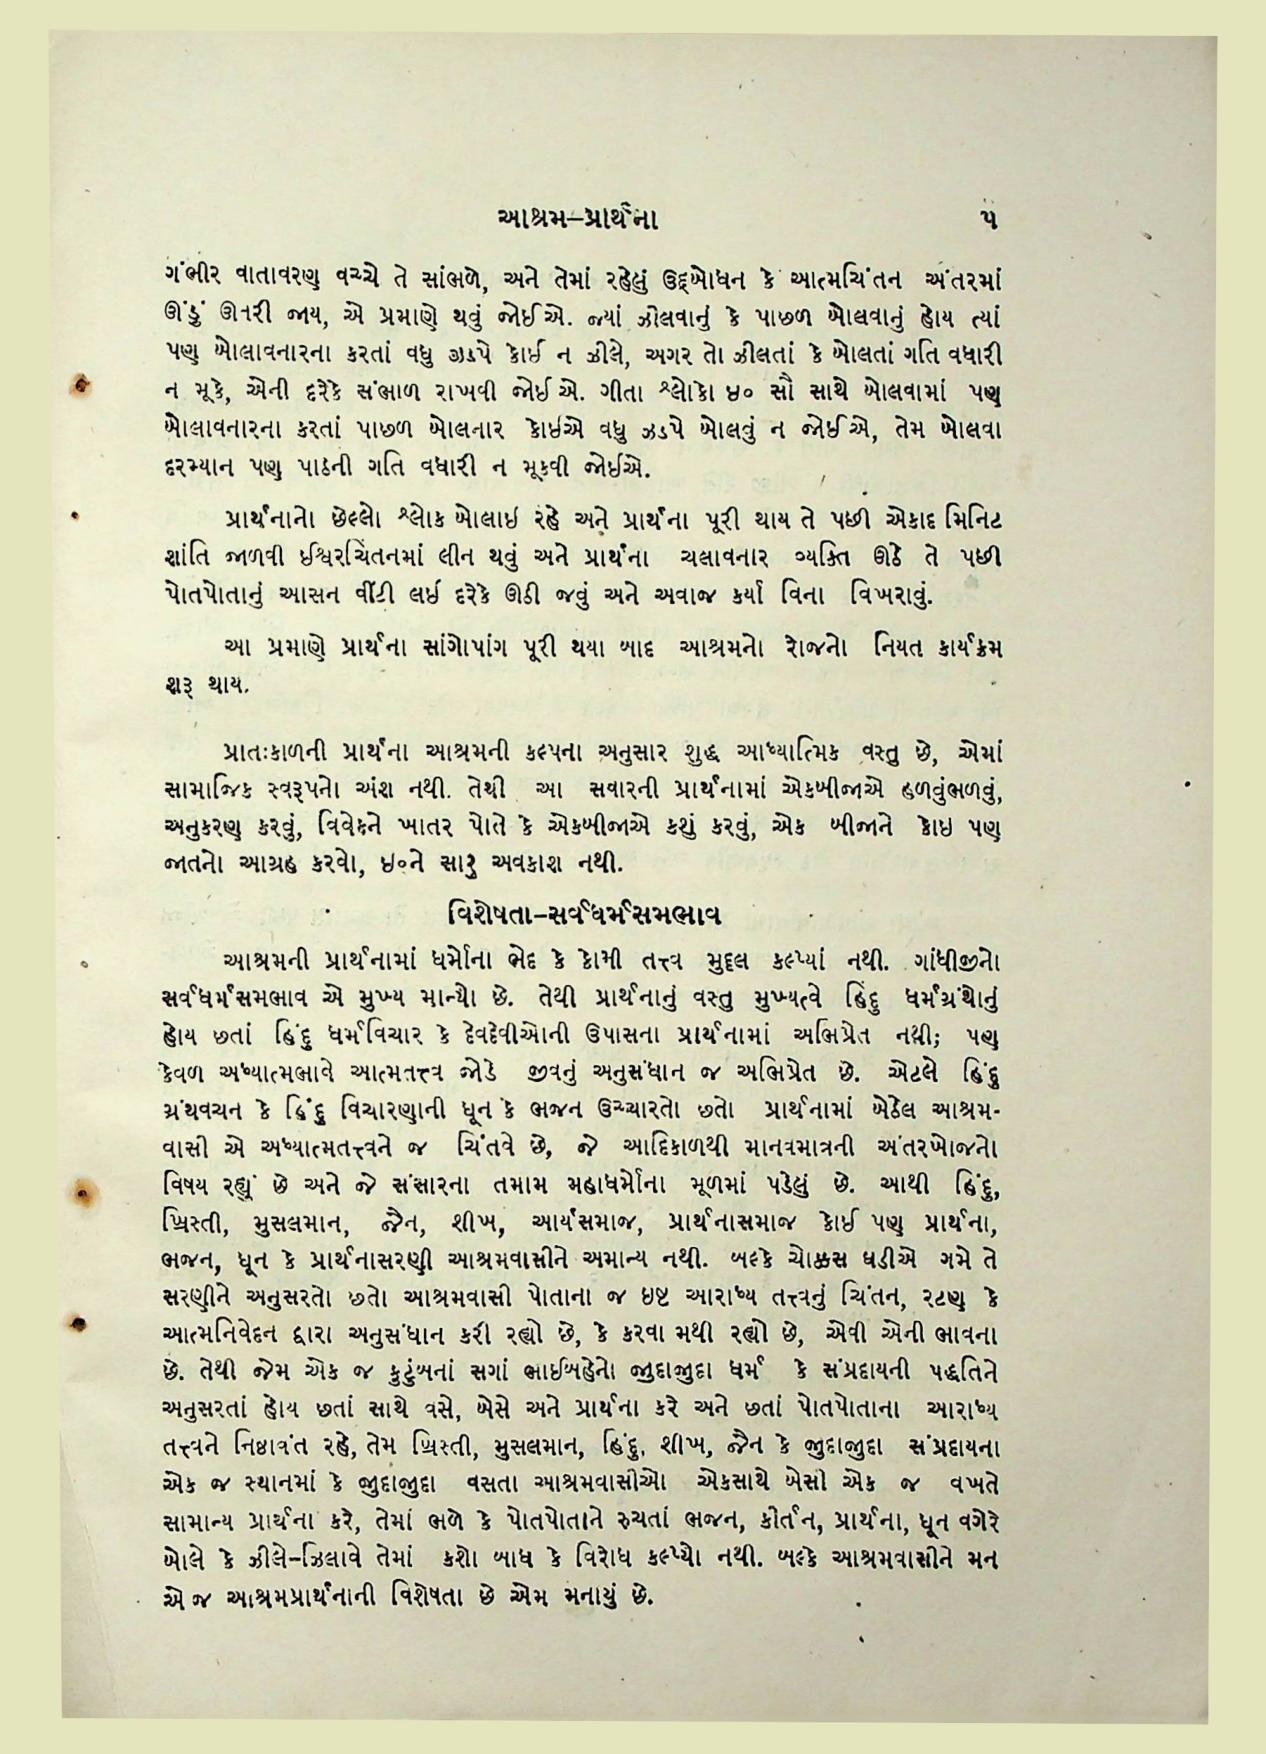 આશ્રમ–પ્રાર્થના ૫
ગંભીર વાતાવરણ વચ્ચે તે સાંભળે, અને તેમાં રહેલું ઉદ્દબોધન કે આત્મચિંતન અંતરમાં
ઊંડું ઊતરી જાય, એ પ્રમાણે થવું જોઈએ. જ્યાં ઝીલવાનું કે પાછળ બોલવાનું હોય ત્યાં
પણ બોલાવનારના કરતાં વધુ ઝડપે કોઈ ન ઝીલે, અગર તો ઝીલતાં કે બોલતાં ગતિ વધારી
ન મૂકે, એની દરેકે સંભાળ રાખવી જોઈએ. ગીતા શ્લોકો ઇ૦ સૌ સાથે બોલવામાં પણ
બોલાવનારના કરતાં પાછળ બોલનાર કોઇએ વધુ ઝડપે બોલવું ન જોઈએ, તેમ બોલવા
દરમ્યાન પણ પાઠની ગતિ વધારી ન મૂકવી જોઈએ.
પ્રાર્થનાનો છેલ્લો શ્લોક બોલાઇ રહે અને પ્રાર્થના પૂરી થાય તે પછી એકાદ મિનિટ
શાંતિ જાળવી ઈશ્વરચિંતનમાં લીન થવું અને પ્રાર્થના ચલાવનાર વ્યક્તિ ઊઠે તે પછી
પોતપોતાનું આસન વીંટી લઇ દરેકે ઊઠી જવું અને અવાજ કર્યા વિના વિખરાવું.
આ પ્રમાણે પ્રાર્થના સાંગોપાંગ પૂરી થયા બાદ આશ્રમનો રોજનો નિયત કાર્યક્રમ
શરૂ થાય.
પ્રાતઃકાળની પ્રાર્થના આશ્રમની કલ્પના અનુસાર શુદ્ધ આધ્યાત્મિક વસ્તુ છે, એમાં
સામાજિક સ્વરૂપનો અંશ નથી. તેથી આ સવારની પ્રાર્થનામાં એકબીજાએ હળવુંભળવું,
અનુકરણ કરવું, વિવેકને ખાતર પોતે કે એકબીજાએ કશું કરવું, એક બીજાને કોઇ પણ
જાતનો આગ્રહ કરવો, ઇ૦ને સારુ અવકાશ નથી.
વિશેષતા–સર્વધર્મસમભાવ
આશ્રમની પ્રાર્થનામાં ધર્મોના ભેદ કે કોમી તત્ત્વ મુદ્દલ કલ્પ્યાં નથી. ગાંધીજીનો
સર્વધર્મસમભાવ એ મુખ્ય માન્યો છે. તેથી પ્રાર્થનાનું વસ્તુ મુખ્યત્વે હિંદુ ધર્મગ્રંથોનું
હોય છતાં હિંદુ ધર્મવિચાર કે દેવદેવીઓની ઉપાસના પ્રાર્થનામાં અભિપ્રેત નથી; પણ
કેવળ અધ્યાત્મભાવે આત્મતત્ત્વ જોડે જીવનું અનુસંધાન જ અભિપ્રેત છે. એટલે હિંદુ
ગ્રંથવચન કે હિંદુ વિચારણાની ધૂન કે ભજન ઉચ્ચારતો છતો પ્રાર્થનામાં બેઠેલ આશ્રમ-
વાસી એ અધ્યાત્મતત્ત્વને જ ચિંતવે છે, જે આદિકાળથી માનવમાત્રની અંતરખોજનો
વિષય રહ્યું છે અને જે સંસારના તમામ મહાધર્મોના મૂળમાં પડેલું છે. આથી હિંદુ,
ખ્રિસ્તી, મુસલમાન, જૈન, શીખ, આર્યસમાજ, પ્રાર્થનાસમાજ કોઈ પણ પ્રાર્થના,
ભજન, ધૂન કે પ્રાર્થનાસરણી આશ્રમવાસીને અમાન્ય નથી. બલ્કે ચોક્કસ ઘડીએ ગમે તે
સરણીને અનુસરતો છતો આશ્રમવાસી પોતાના જ ઇષ્ટ આરાધ્ય તત્ત્વનું ચિંતન, રટણ કે
આત્મનિવેદન દ્વારા અનુસંધાન કરી રહ્યો છે, કે કરવા મથી રહ્યો છે, એવી એની ભાવના
છે. તેથી જેમ એક જ કુટુંબનાં સગાં ભાઈબહેનો જુદાજુદા ધર્મ કે સંપ્રદાયની પદ્ધતિને
અનુસરતાં હોય છતાં સાથે વસે, બેસે અને પ્રાર્થના કરે અને છતાં પોતપોતાના આરાધ્ય
તત્ત્વને નિષ્ઠાવંત રહે, તેમ ખ્રિસ્તી, મુસલમાન, હિંદુ, શીખ, જૈન કે જુદાજુદા સંપ્રદાયના
એક જ સ્થાનમાં કે જુદાજુદા વસતા આશ્રમવાસીઓ એકસાથે બેસી એક જ વખતે
સામાન્ય પ્રાર્થના કરે, તેમાં ભળે કે પોતપોતાને રુચતાં ભજન, કીર્તન, પ્રાર્થના, ધૂન વગેરે
બોલે કે ઝીલે–ઝિલાવે તેમાં કશો બાધ કે વિરોધ કલ્પ્યો નથી. બલ્કે આશ્રમવાસીને મન
એ જ આશ્રમપ્રાર્થનાની વિશેષતા છે એમ મનાયું છે.